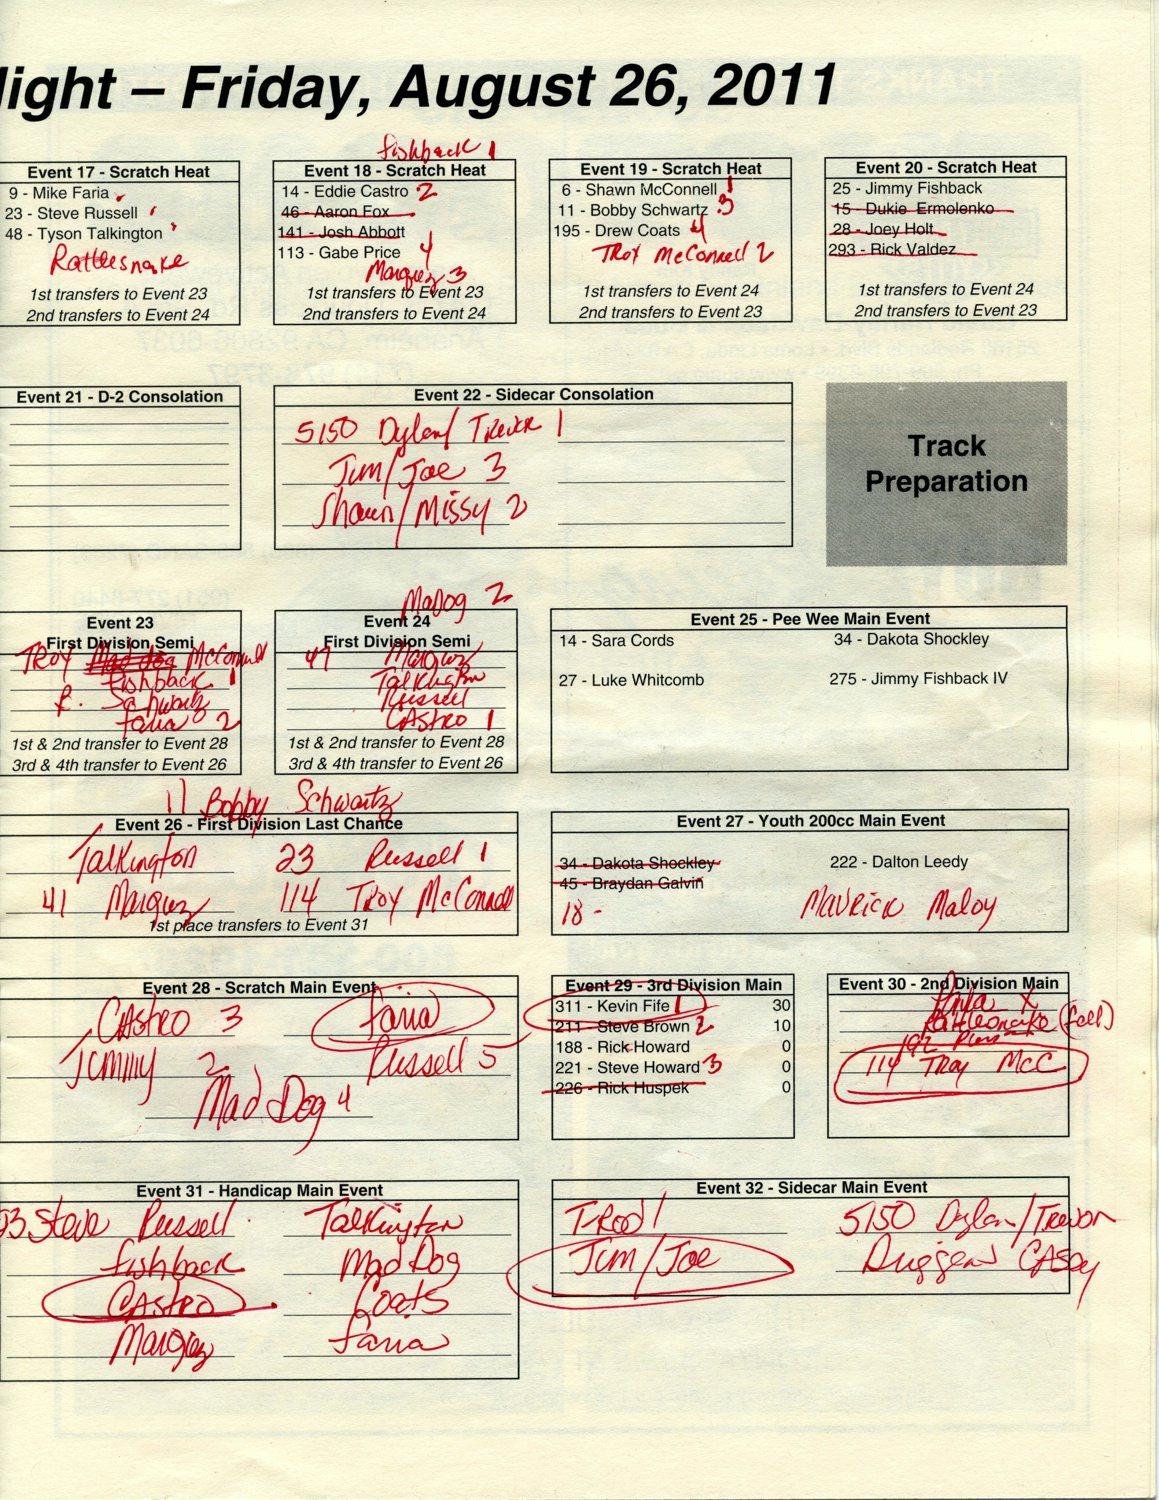 light – Friday, August 26, 2011
Event 17 - Scratch Heat
9 - Mike Faria
23 - Steve Russell
48 - Tyson Talkington
Rattlesnake
1st transfers to Event 23
2nd transfers to Event 24
Fishback 1
Event 18 - Scratch Heat
14 - Eddie Castro 2
46 - Aaron Fox
141 - Josh Abbott
113 - Gabe Price 4
Marquez 3
1st transfers to Event 23
2nd transfers to Event 24
Event 19 - Scratch Heat
6 - Shawn McConnell 1
11 - Bobby Schwartz 3
195 - Drew Coats 4
Troy McConnell 2
1st transfers to Event 24
2nd transfers to Event 23
Event 20 - Scratch Heat
25 - Jimmy Fishback
15 - Dukie Ermolenko
28 - Joey Holt
293 - Rick Valdez
1st transfers to Event 24
2nd transfers to Event 23
Event 21 - D-2 Consolation
Event 22 - Sidecar Consolation
5150 Dylan/Trevor 1
Jim/Joe 3
Shawn/Missy 2
Track
Preparation
Event 23
First Division Semi
Troy Mad dog McConnell
Fishback 1
Schwartz
Faria 2
1st & 2nd transfer to Event 28
3rd & 4th transfer to Event 26
MaDog 2
Event 24
First Division Semi
47 Marquez
Talkington
Russell
Castro 1
1st & 2nd transfer to Event 28
3rd & 4th transfer to Event 26
Event 25 - Pee Wee Main Event
14 - Sara Cords
34 - Dakota Shockley
27 - Luke Whitcomb
275 - Jimmy Fishback IV
11 Bobby Schwartz
Event 26 - First Division Last Chance
Talkington 23 Russell 1
41 Marquez 114 Troy McConnell
1st place transfers to Event 31
Event 27 - Youth 200cc Main Event
34 - Dakota Shockley
222 - Dalton Leedy
45 - Braydan Galvin
18 - Mavrick Maloy
Event 28 - Scratch Main Event
Castro 3 Faria
Jimmy 2 Russell 5
Mad Dog 4
Event 29 - 3rd Division Main
311 - Kevin Fife 1 30
211 - Steve Brown 2 10
188 - Rick Howard 0
221 - Steve Howard 3 0
226 - Rick Huspek 0
Event 30 - 2nd Division Main
Rattlesnake (fell)
192
114 Troy McC
Event 31 - Handicap Main Event
23 Steve Russell Talkington
Fishback Mad Dog
Castro Coats
Marquez Faria
Event 32 - Sidecar Main Event
T-Rod 1 5150 Dylan/Trevor
Jim/Joe Duggen Casey